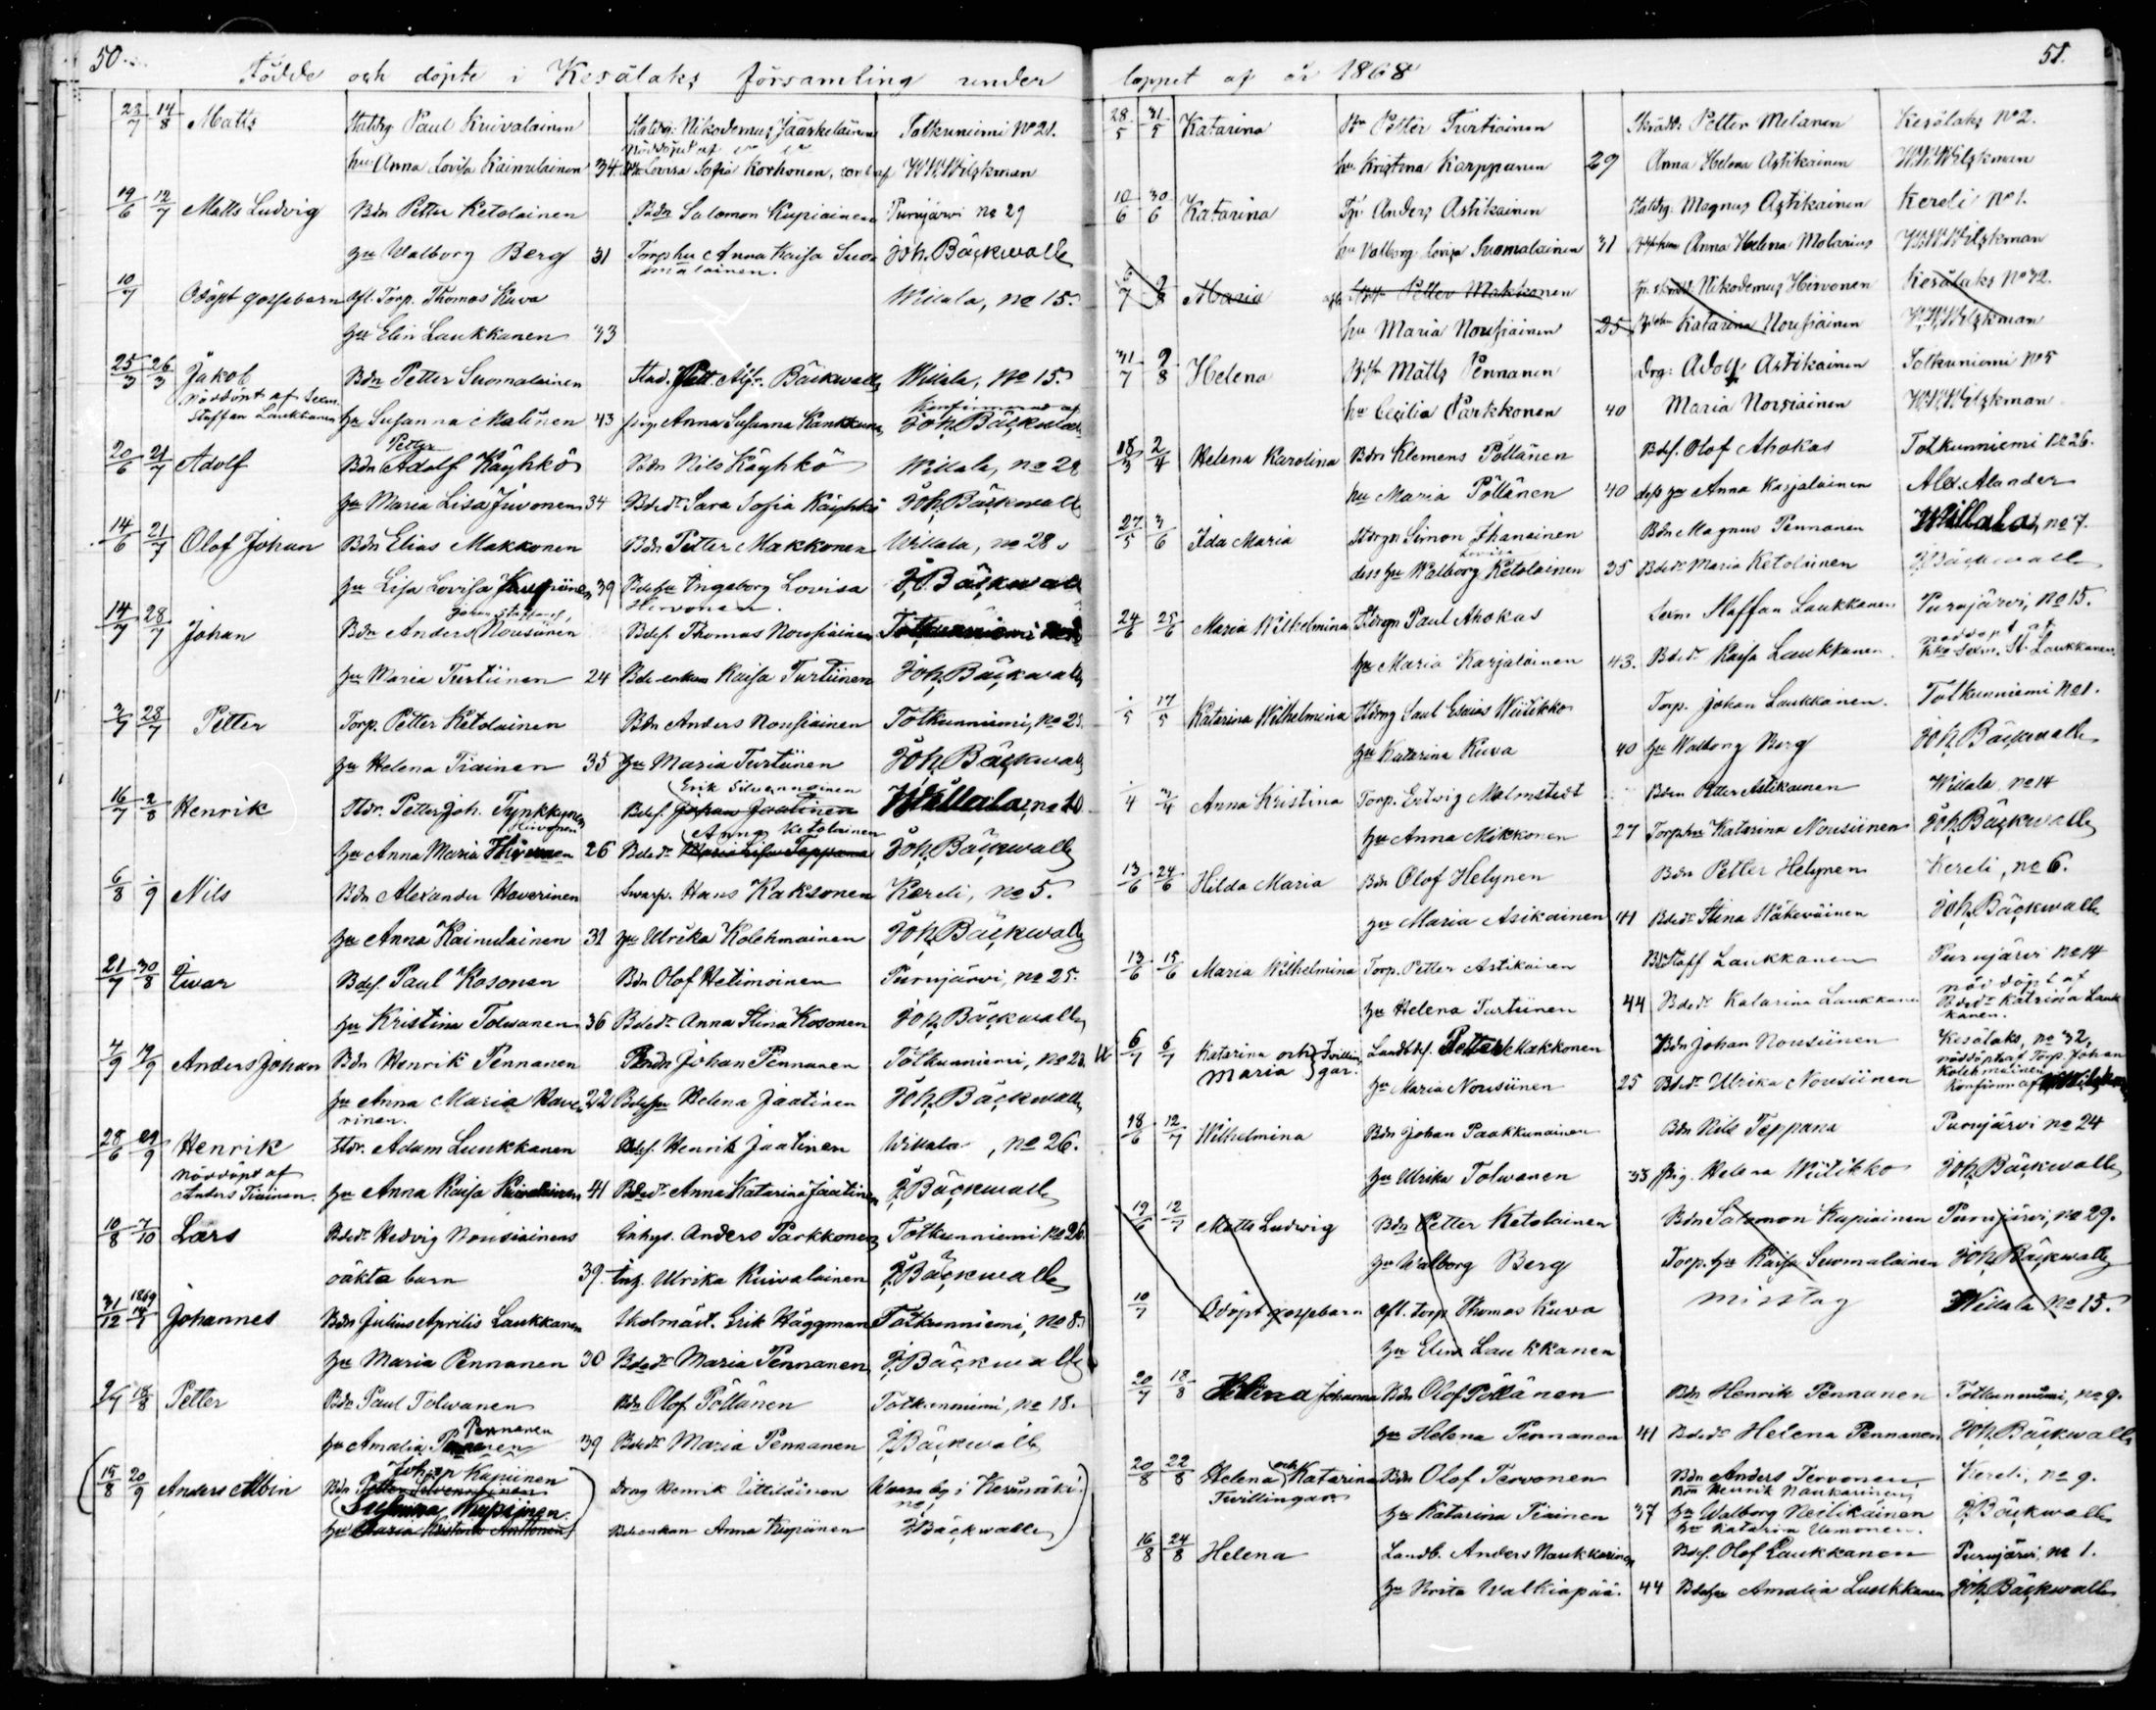 50.
Födde och döpte i Kesälaks församling under
23/7 14/8 Matts Paul Kuivalainen Nikodemus Jääskeläinen Totkuniemi No 21.
nöddöpt af
hu Anna Lovisa Kainulainen 34 Lovisa Sofia Korhonen, W.W.Wilskman
19/6 12/7 Matts Ludvig Bdn Petter Ketolainen Bdn Salomon Kupiainen Purujärvi no 29
hu Walborg Berg 31 Torp hu Anna Kaisa Suo- Joh. Bäckwall
malainen.
10/7 Odöpt gossebarn Afl. Torp. Thomas Kuva Willala, no 15.
hu Elin Laukkanen 43
25/3 26/3 Jakob Bdn Petter Suomalainen Stud. Bäckwall Willala, No 15.
nöddöpt af Sexm. Konfirmerad af
Staffan Laukkanen hu Susanna Malinen 43 pig. Anna Susanna Joh. Bäckwall
Petter
20/6 21/7 Adolf Bdn Adolf Käyhkö Bdn Nils Käyhkö Willala, no 28
hu Maria Lisa Juvonen 34 Bdedr Sara Sofia Käyhkö Joh. Bäckwall
14/6 21/7 Olof Johan Bdn Elias Makkonen Bdn Petter Makkonen Willala, no 28.
hu Lisa Lovisa 39 Bdehu Ingeborg Lovisa J. Bäckwall
Hirvonen.
Johan Staffans,
14/7 28/7 Johan Bdn Anders Nousiinen Bdes. Thomas Nousiainen
hu Maria Turtiinen 24 Bde-enkan Kaisa Turtiinen Joh. Bäckwall
3/7 28/7 Petter Torp. Petter Ketolainen Bdn Anders Nousiainen Totkunniemi, no 25.
hu Helena Tiainen 35 hu Maria Turtiinen Joh. Bäckwall
Erik Silvennoinen
16/7 2/8 Henrik Petter Joh. Tynkkynen Bdes. Johan Jaatinen Willala, no 10
Hirvonen Anna Ketolainen
hu Anna Maria 26 Bdedr Maria Lisa Tappana Joh. Bäckwall
6/8 /9 Nils Bdn Alexander Haverinen Swarf. Hans Kaksonen Kereli, no 5.
hu Anna Kainulainen 31 hu Ulrika Kolehmainen Joh. Bäckwall
21/7 30/8 Ivar Bdes. Paul Kosonen Bdn Olof Hetimoinen Purujärvi, no 25.
hu Kristina Tolwanen 36 Bdedr Anna Stina Kosonen Joh. Bäckwall
4/9 19/9 Anders Johan Bdn Henrik Pennanen Johan Pennanen Totkunniemi, no 23.
hu Anna Maria Have- 22 Bdehu Helena Jaatinen Joh. Bäckwall
rinen.
28/6 29/9 Henrik Adam Luukkanen Bdes. Henrik Jaatinen Willala, no 26.
nöddöpt af
Anders Tiainen. hu Anna Kaisa 41 Bdedr Anna Katarina Jaatinen J. Bäckwall
10/8 7/10 Lars Bdedr Hedvig Nousiainens Inhys. Anders Parkkonen Totkunniemi no 26.
oäkta barn 39. Inh. Ulrika Kuivalainen J. Bäckwall
1869
31/12 14/1 Johannes Bdn Julius Aprilis Laukkanen Skolmäst. Erik Häggman Totkunniemi, no 8.
hu Maria Pennanen 30 Bdedr Maria Pennanen J. Bäckwall
2/7 18/8 Petter Bdn Paul Tolwanen Bdn Olof Pöllänen Totkunniemi, no 18.
Pennanen
hu Amalia 39 Bdedr Maria Pennanen J. Bäckwall
Johan Kupiinen
15/8 20/9 Anders Albin Bdn Petter Silvennoinen Drng Henrik Wäärä by i Kerimäki.
Kupiinen.
hu Maria Kristina Anttonen Bdeenkan Anna Kupiinen J. Bäckwall

51.
loppet af år 1868
28/5 31/5 Katarina Petter Turtiainen Skrädd. Petter Melanen Kesälaks No 2.
hu Kristina Karppanen 29 Anna Helena Astikainen W.W.Wilskman
10/6 30/6 Katarina Anders Astikainen Magnus Astikainen Kereli No 1.
hu Valborg Lovisa Suomalainen 31 Anna Helena Molarius W.W.Wilskman
6/7 9/8 Maria Petter Makkonen Nikodemus Hirvonen Kesälaks No 32.
hu Maria Nousiainen 25 Katarina Nousiainen W.W.Wilskman
31/7 9/8 Helena Matts Pennanen Drg: Adolf Astikainen Totkuniemi No 5
hu Cecilia Parkkonen 40 Maria Nousiainen W.W.Wilskman
18/3 2/4 Helena Karolina Bdn Klemens Pöllänen Bdes. Olof Ahokas Totkunniemi no 26.
hu Maria Pöllänen 40 dess hu Anna Karjalainen Alex. Alander
27/5 3/6 Ida Maria Simon Ihanainen Bdn Magnus Pennanen Willala, no 7.
Lovisa
dess hu Walborg Ketolainen 35 Bdedr Maria Ketolainen J. Bäckwall
24/6 25/6 Maria Wilhelmina Paul Ahokas Sexm. Staffan Laukkanen Purujärvi, no 15.
nöddöpt af
hu Maria Karjalainen 43. Bdedr Kaisa Laukkanen Sexm. St. Laukkanen
/5 17/5 Katarina Wilhelmina Saul Esaias Wiitikko Torp. Johan Laukkanen. Totkunniemi no 1.
hu Katarina Kuva 40 hu Walborg Berg Joh. Bäckwall
/4 3/4 Anna Kristina Torp. Entwig Malmstedt Bdn Petter Astikainen Willala no 14
hu Anna Mikkonen 27 Torphu Katarina Nousiinen Joh. Bäckwall
13/6 24/6 Hilda Maria Bdn Olof Helynen Bdn Petter Helynen Kereli, no 6.
hu Maria Asikainen 41 Bdedr Stina Häkeväinen Joh. Bäckwall
13/6 15/6 Maria Wilhelmina Torp. Petter Astikainen Staff Laukkanen Purujärvi no 14
nöddöpt af
hu Helena Turtiinen 44 Bdedr Katarina Laukkanen Bdedr Katrina Lauk-
kanen.
6/7 6/7 Katarina och Tvillin- Landbds. Petter Makkonen Bdn Johan Nousiinen Kesälaks, no 32,
Maria gar. nöddöpt af Torp. Johan
Kolehmainen
hu Maria Nousiinen 25 Bdedr Ulrika Nousiinen Konfirm af
18/6 12/7 Wilhelmina Bdn Johan Paakkunainen Bdn Nils Teppana Purujärvi no 24
hu Ulrika Tolwanen 33 pig. Helena Wiitikko Joh. Bäckwall
19/6 12/7 Matts Ludwig Bdn Petter Ketolainen Bdn Salomon Kupiainen Purujärvi, no 29.
hu Walborg Berg Torp. hu Kaisa Suomalainen Joh. Bäckwall
10/7 Odöpt gossebarn Afl. Torp Thomas Kuva misstag Willala no 15.
hu Elin Laukkanen
20/7 18/8 Helena Johanna Bdn Olof Pöllänen Bdn Henrik Pennanen Totkunniemi, no 9.
hu Helena Pennanen 41 Bdedr Helena Pennanen Joh. Bäckwall
20/8 22/8 Helena och Katarina Bdn Olof Tervonen Bdn Anders Tervonen, Kereli, no 9.
Twillingar. Bdn Henrik Naukkarinen,
hu Katarina Tiainen 37 hu Walborg Neilikäinen J. Bäckwall
hu Katarina Uimonen.
16/8 24/8 Helena Landb. Anders Naukkarinen Bdes. Olof Laukkanen Purujärvi, no 1.
hu Brita Walkiapää. 44 Bdehu Amalia Luukkanen Joh. Bäckwall